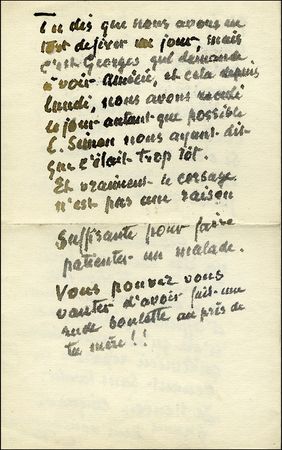 Tu dis que nous avons un
tout désirer un jour, mais
c'est Georges qui demande
à voir Amélie, et cela depuis
lundi, nous avons reculé
le jour autant que possible
L. Simon nous ayant dit
que c'était trop tôt.
Et vraiment le corsage
n'est pas une raison
suffisante pour faire
patienter un malade.
Vous pouvez vous
vanter d'avoir fait une
rude boulette au près de
ta mère!!